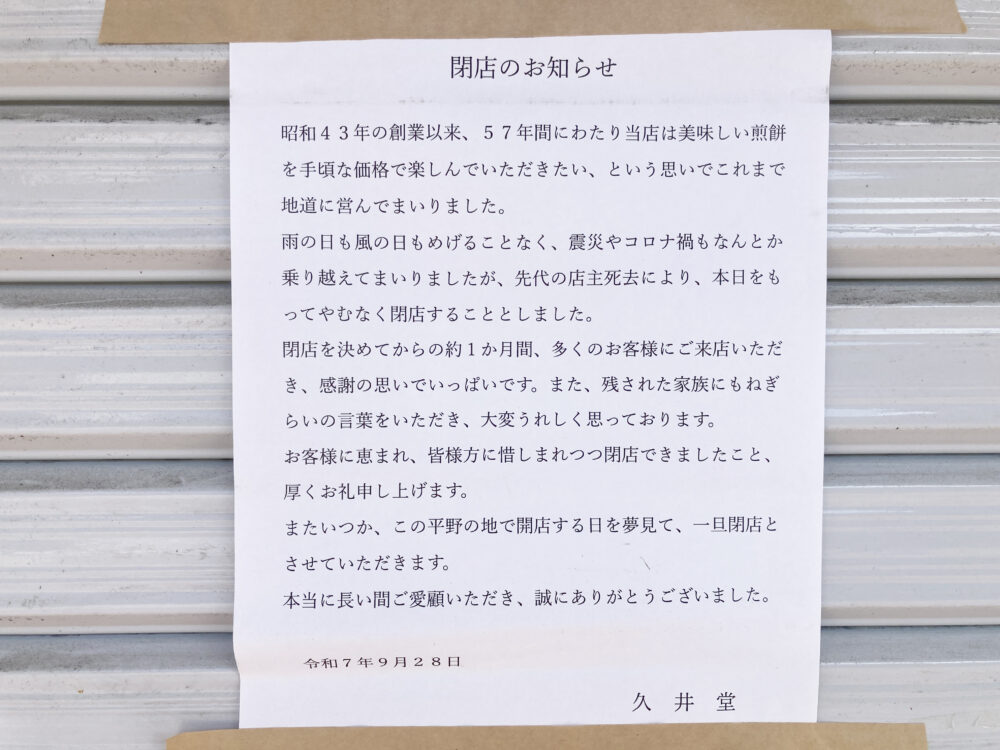 閉店のお知らせ
昭和４３年の創業以来、５７年間にわたり当店は美味しい煎餅
を手頃な価格で楽しんでいただきたい、という思いでこれまで
地道に営んでまいりました。
雨の日も風の日もめげることなく、震災やコロナ禍もなんとか
乗り越えてまいりましたが、先代の店主死去により、本日をも
ってやむなく閉店することとしました。
閉店を決めてからの約１か月間、多くのお客様にご来店いただ
き、感謝の思いでいっぱいです。また、残された家族にもねぎ
らいの言葉をいただき、大変うれしく思っております。
お客様に恵まれ、皆様方に惜しまれつつ閉店できましたこと、
厚くお礼申し上げます。
またいつか、この平野の地で開店する日を夢見て、一旦閉店と
させていただきます。
本当に長い間ご愛顧いただき、誠にありがとうございました。
令和７年９月２８日
久　井　堂